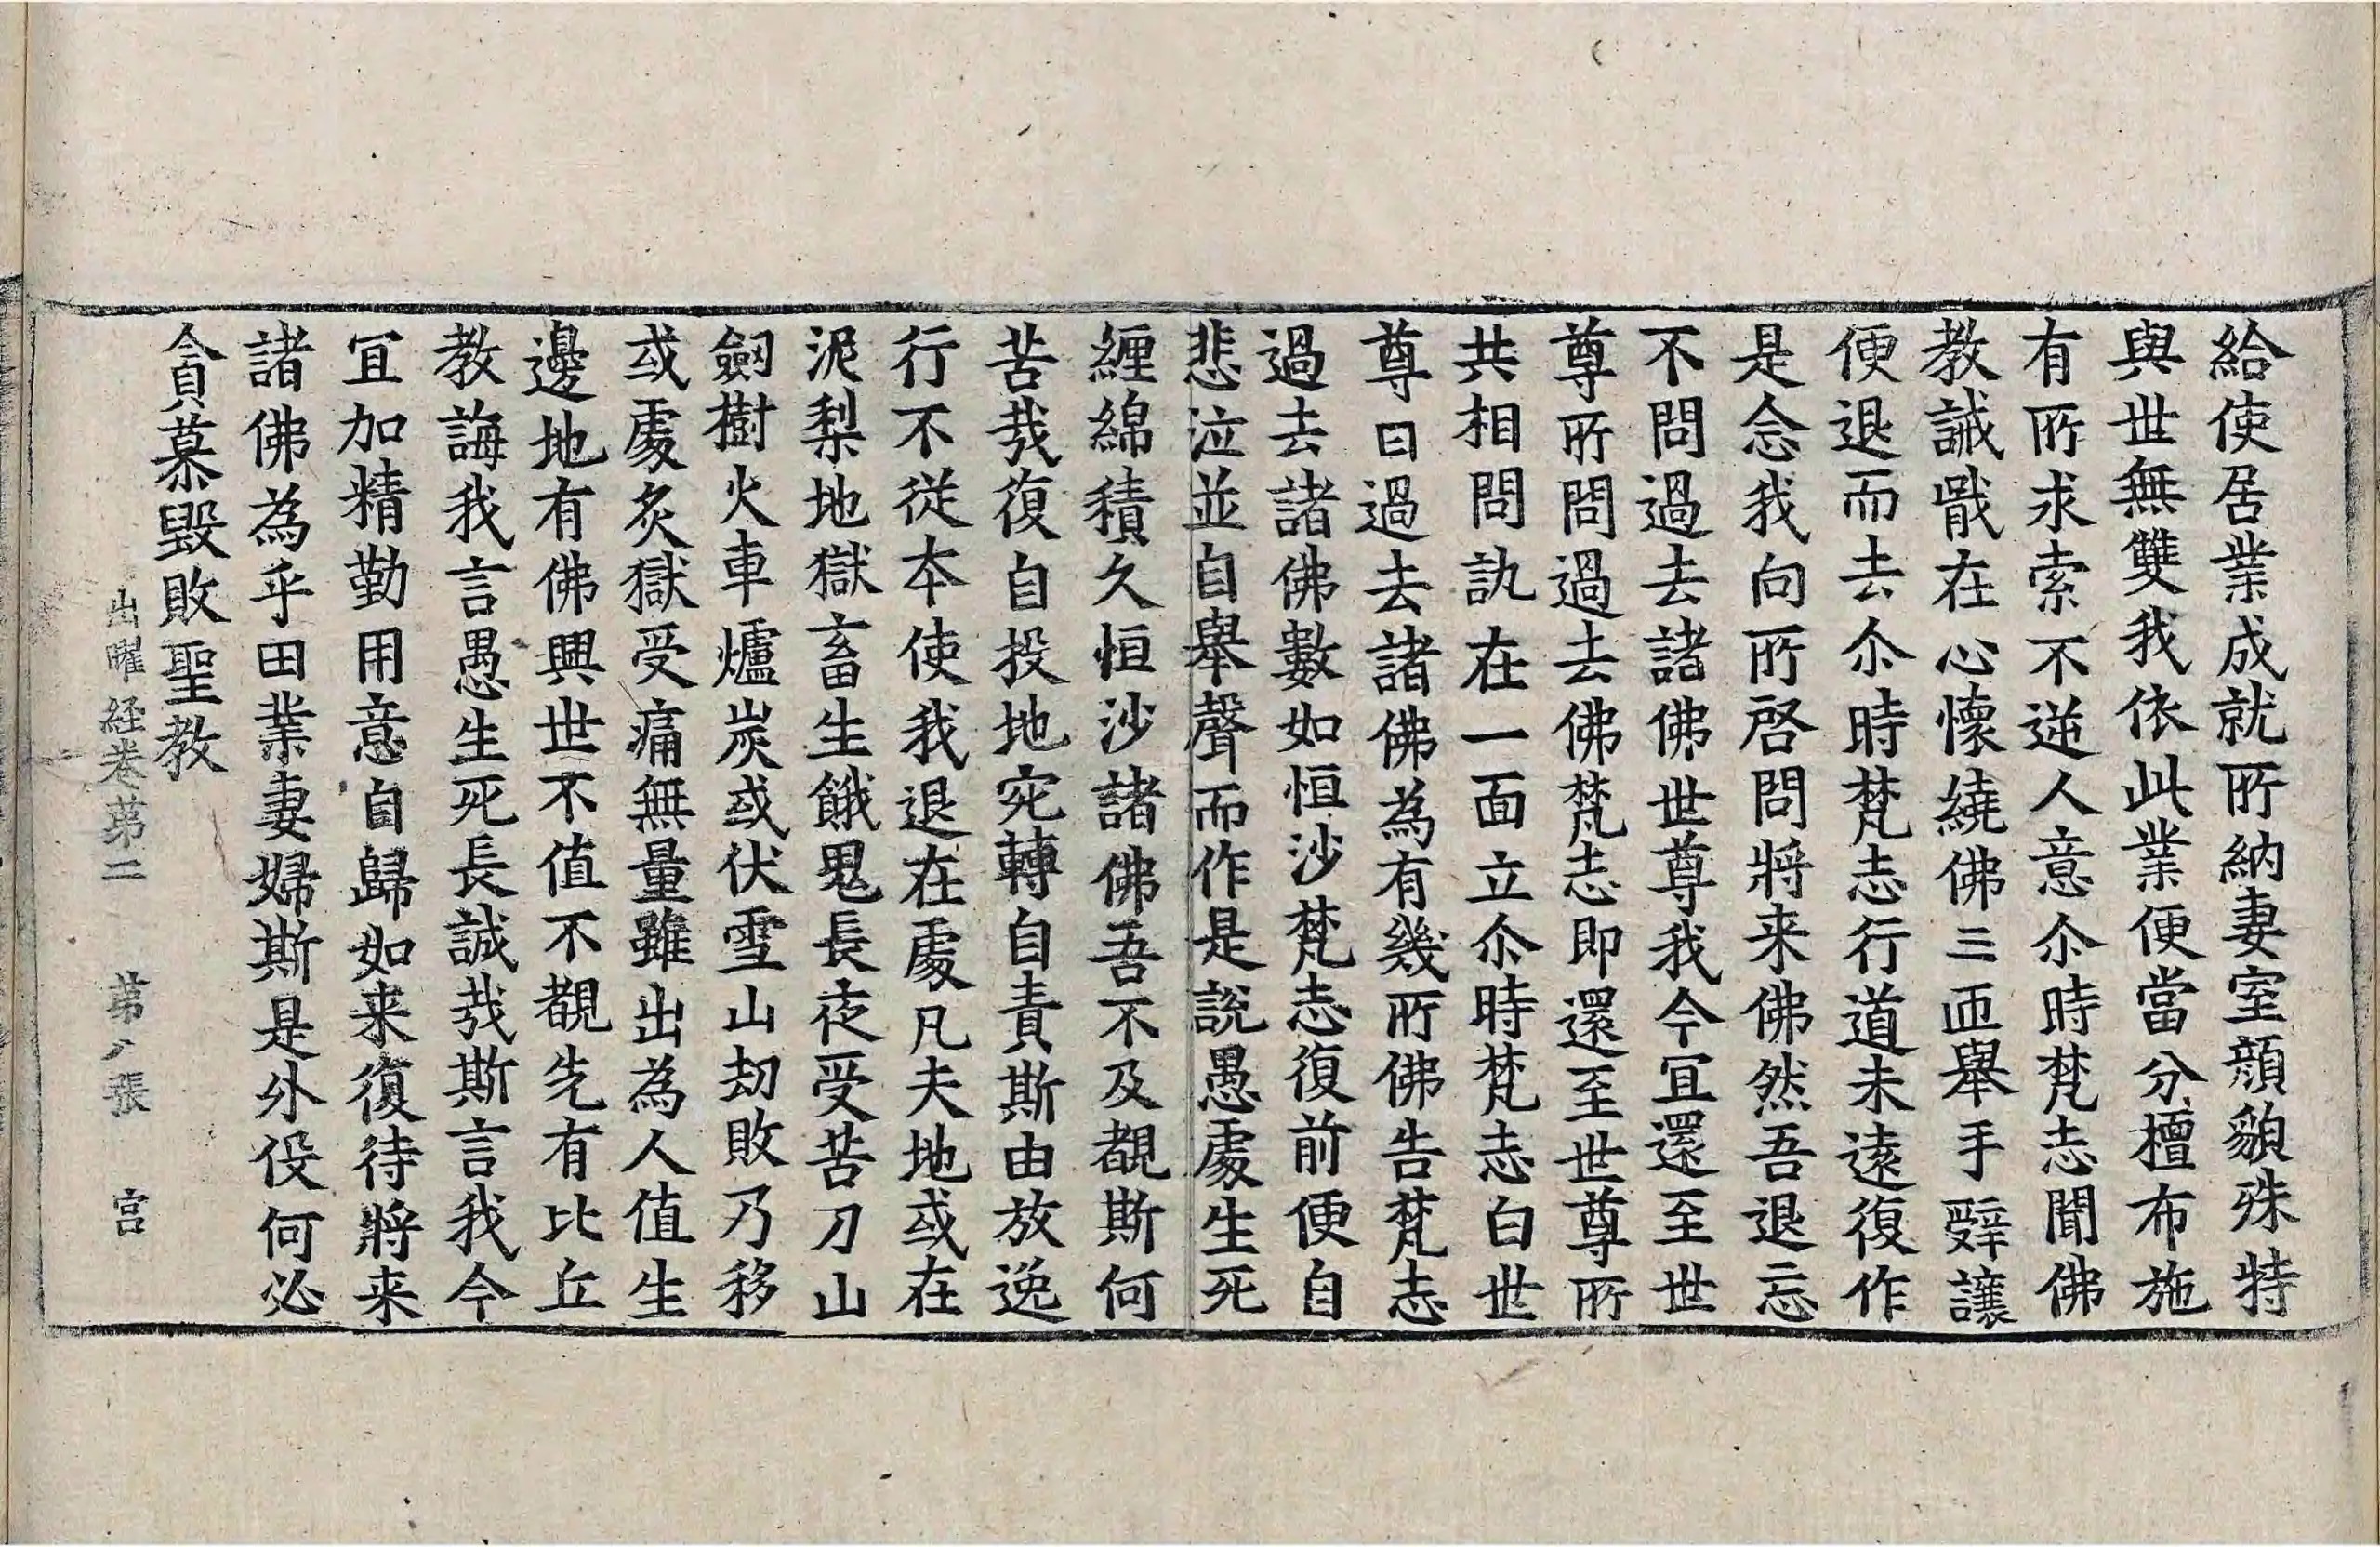 給使居業成就所納妻室顔貌殊特
與世無雙我依此業便當分檀布施
有所求索不逆人意尒時梵志聞佛
教誡戢在心懷繞佛三匝舉手辤讓
便退而去尒時梵志行道未遠復作
是念我向所啓問將来佛然吾退忘
不問過去諸佛世尊我今冝還至世
尊所問過去佛梵志即還至世尊所
共相問訊在一面立尒時梵志白世
尊曰過去諸佛為有幾所佛告梵志
過去諸佛數如恒沙梵志復前便自
悲泣並自舉聲而作是說愚處生死
纒綿積久恒沙諸佛吾不及覩斯何
苦㢤復自投地宛轉自責斯由放逸
行不從本使我退在處凡夫地或在
泥梨地獄畜生餓鬼長夜受苦刀山
劒樹火車爐炭或伏雪山劫敗乃移
或處炙獄受痛無量雖出為人值生
邊地有佛興世不值不覩先有比丘
教誨我言愚生死長誠㢤斯言我今
冝加精勤用意自歸如来復待將来
諸佛為乎田業妻婦斯是外役何必
貪慕毀敗聖教
出曜経卷苐二 苐八張 宫